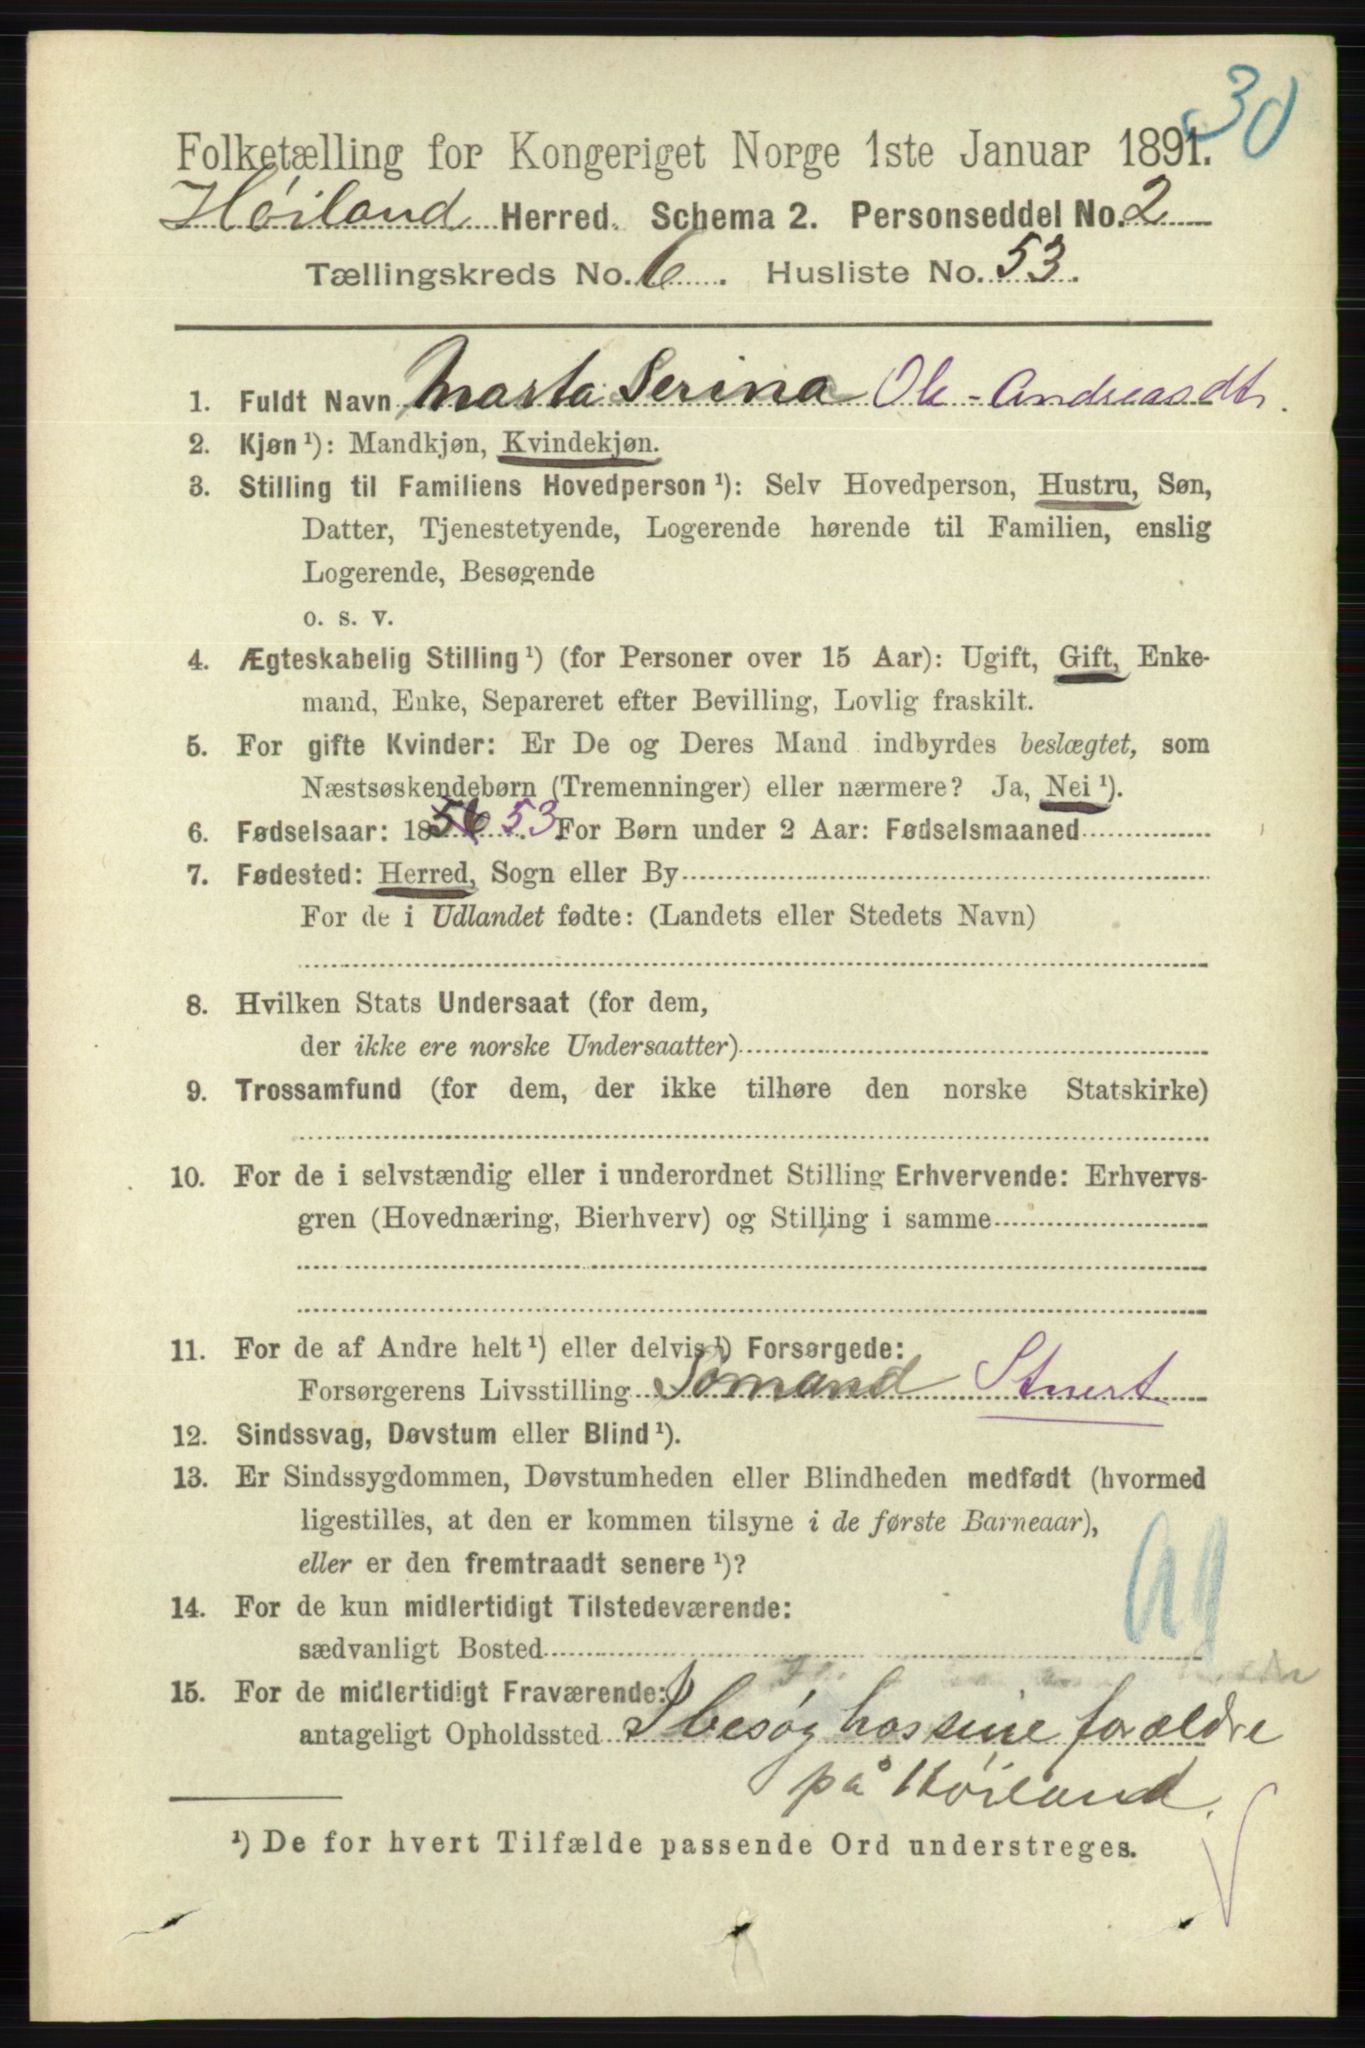 30
Folketælling for Kongeriget Norge 1ste Januar 1891.
Høiland Herred. Schema 2. Personseddel No. 2
Tællingskreds No. 6. Husliste No. 53.
1. Fuldt Navn Marta Serina Ole-Andreasdtr.
2. Kjøn ¹): Mandkjøn, Kvindekjøn.
3. Stilling til Familiens Hovedperson ¹): Selv Hovedperson, Hustru, Søn,
Datter, Tjenestetyende, Logerende hørende til Familien, enslig
Logerende, Besøgende
o. s. v.
4. Ægteskabelig Stilling ¹) (for Personer over 15 Aar): Ugift, Gift, Enke-
mand, Enke, Separeret efter Bevilling, Lovlig fraskilt.
5. For gifte Kvinder: Er De og Deres Mand indbyrdes beslægtet, som
Næstsøskendebørn (Tremenninger) eller nærmere? Ja, Nei ¹).
6. Fødselsaar: 1856 53. For Børn under 2 Aar: Fødselsmaaned
7. Fødested: Herred, Sogn eller By
For de i Udlandet fødte: (Landets eller Stedets Navn)
8. Hvilken Stats Undersaat (for dem,
der ikke ere norske Undersaatter)
9. Trossamfund (for dem, der ikke tilhøre den norske Statskirke)
10. For de i selvstændig eller i underordnet Stilling Erhvervende: Erhvervs-
gren (Hovednæring, Bierhverv) og Stilling i samme
11. For de af Andre helt ¹) eller delvis ¹) Forsørgede:
Forsørgerens Livsstilling Sømand Stuert
12. Sindssvag, Døvstum eller Blind ¹).
13. Er Sindssygdommen, Døvstumheden eller Blindheden medfødt (hvormed
ligestilles, at den er kommen tilsyne i de første Barneaar),
eller er den fremtraadt senere ¹)?
14. For de kun midlertidigt Tilstedeværende:
sædvanligt Bosted
15. For de midlertidigt Fraværende:
antageligt Opholdssted I besøg hos sine forældre
på Høiland.
¹) De for hvert Tilfælde passende Ord understreges.